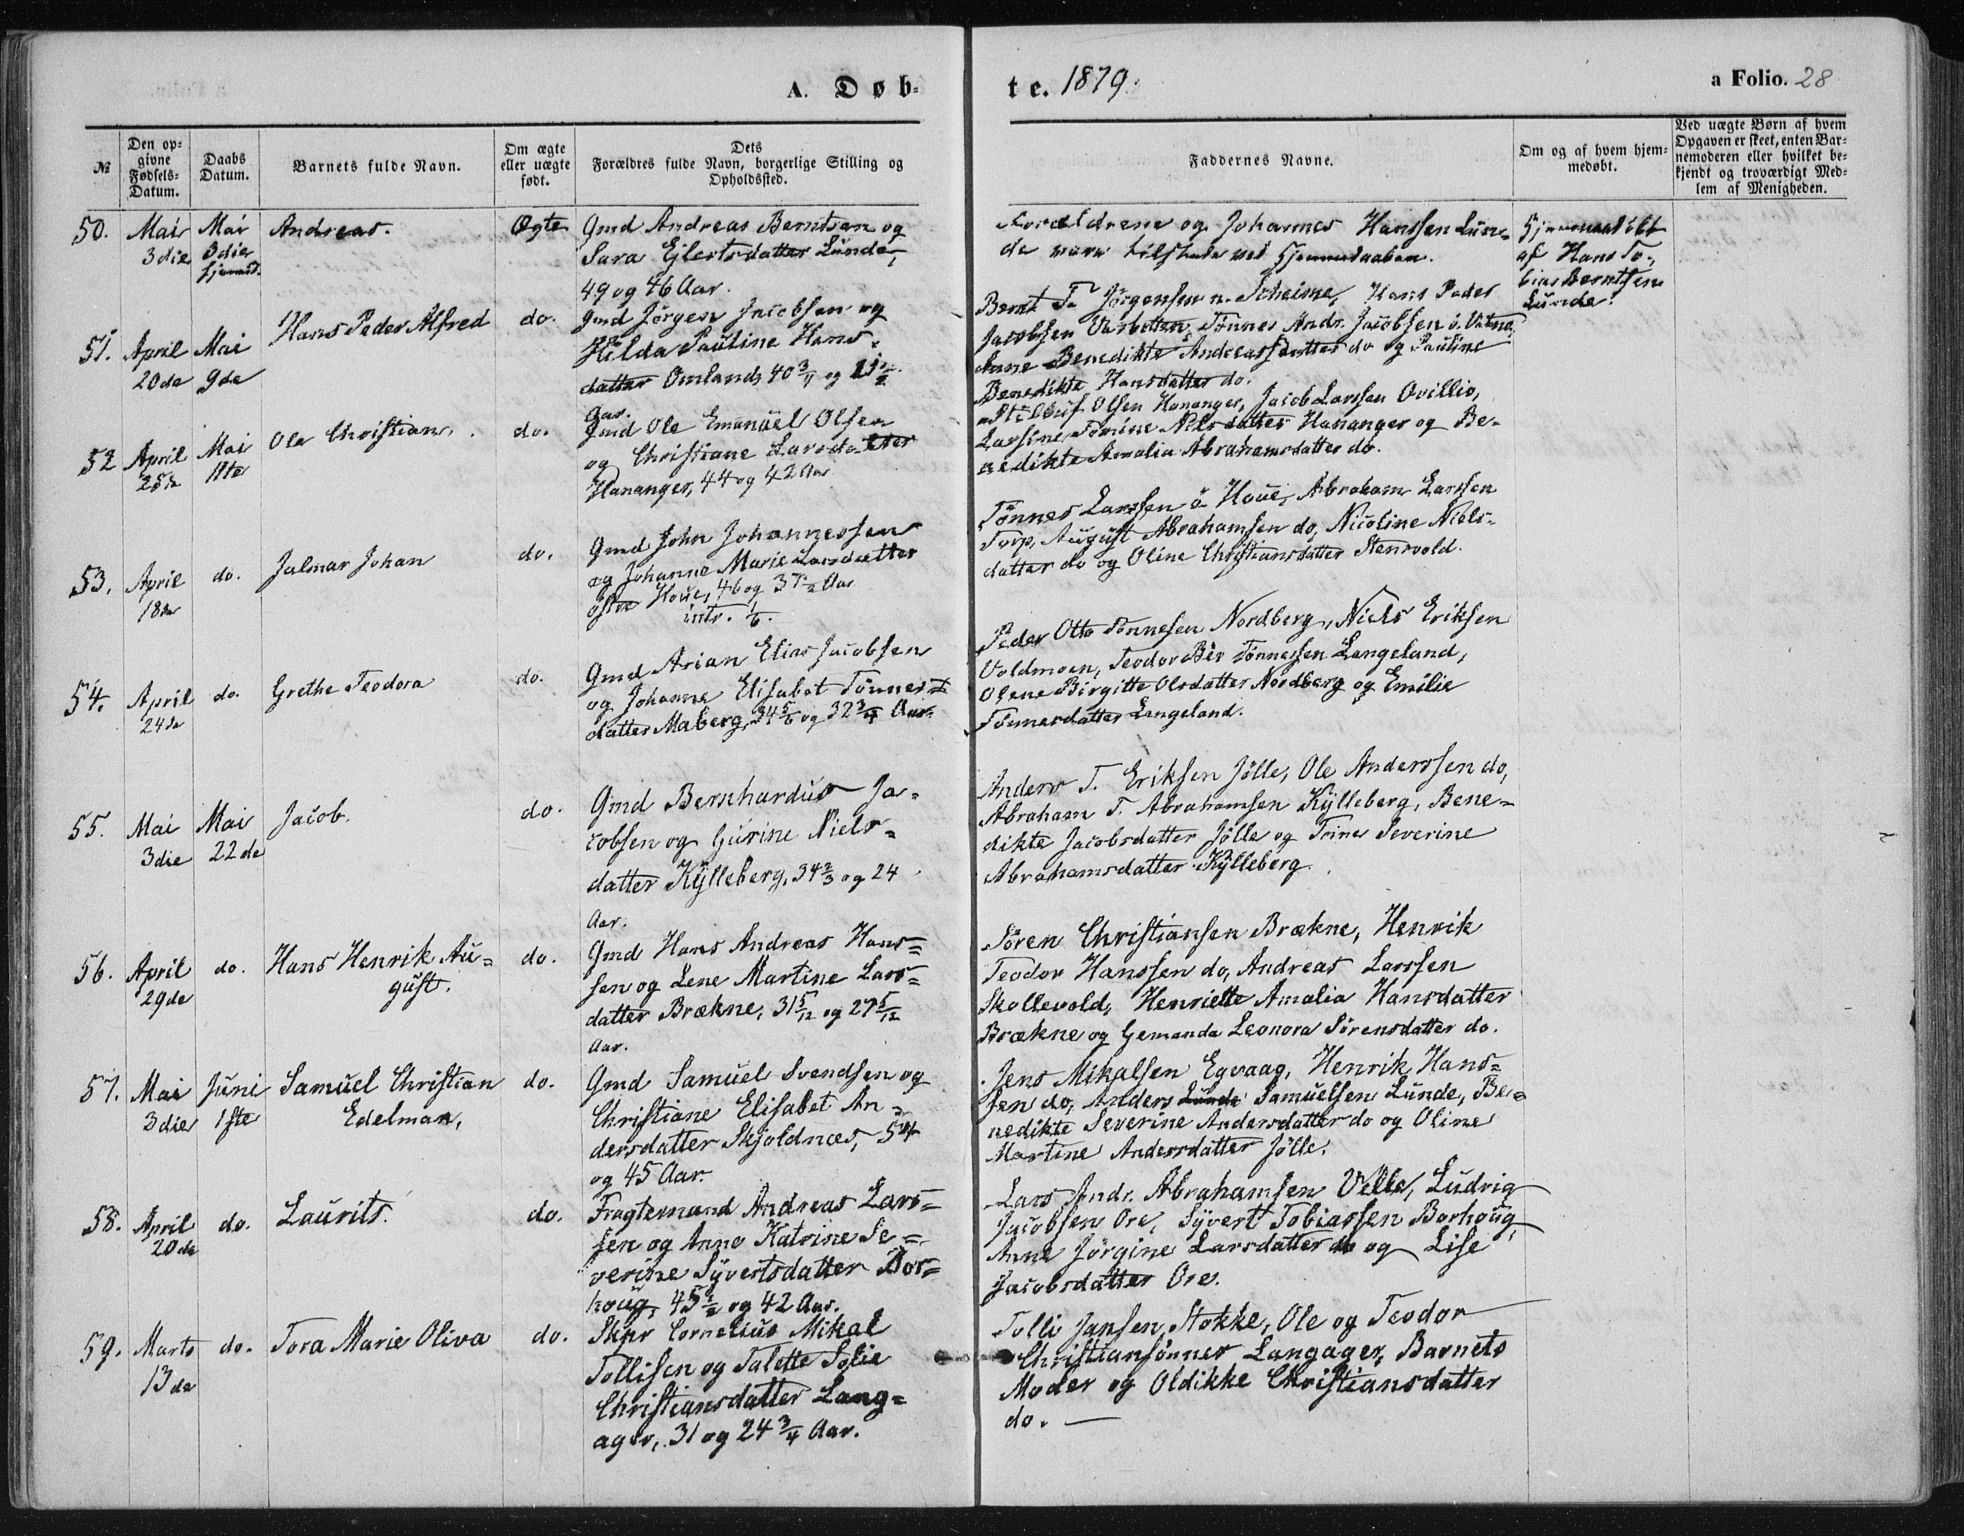 A. Døb-
№
Den op-
givne
Fødsels-
Datum.
Daabs
Datum.
Barnets fulde Navn.
Om ægte
eller uægte
født.
Dets
Forældres fulde Navn, borgerlige Stilling og
Opholdssted.
50.
Mai
3die
Mai
3die
hjemmed.
Andreas.
Ægte
Gmd Andreas Berntsen og
Sara Eilertsdatter Lunde,
49 og 46 Aar.
51.
April
20de
Mai
9de
Hans Peder Alfred
do.
Gmd Jörgen Jacobsen og
Hilda Pauline Hans-
datter Omland, 40 3/4 og
Aar.
52
April
25de
Mai
11te
Ole Christian.
do.
Gmd Ole Emanuel Olsen
og Christiane Larsdatter
Hananger, 44 og 42 Aar
53.
April
18de
do.
Jalmar Johan
do.
Gmd John Johannessen
og Johanne Marie Larsdatter
östre Houe, 46 og 37 1/2 Aar
intr. 1/6.
54.
April
24de
do.
Grethe Teodora
do.
Gmd Arian Elias Jacobsen
og Johanne Elisabet Tönnes-
datter Maberg, 34 5/6 og 32 3/4 Aar.
55.
Mai
3die
Mai
22de
Jacob.
do.
Gmd Bernhardus Ja-
cobsen og Gurine Niels-
datter Kylleberg, 34 2/3 og 24
Aar.
56.
April
29de
do.
Hans Henrik Au-
gust.
do.
Gmd Hans Andreas Hans-
sen og Lene Martine Lars-
datter Brækne, 31 5/12 og 27 5/12
Aar.
57.
Mai
3die
Juni
1ste
Samuel Christian
Edelman,
do.
Gmd Samuel Svendsen og
Christiane Elisabet An-
dersdatter Skjoldnæs, 54
og 45 Aar.
58.
April
20de
do.
Laurits.
do.
Fragtemand Andreas Lars-
sen og Anne Katrine Se-
verine Syvertsdatter Bor-
houg, 45 1/2 og 42 Aar.
59.
Marts
13de
do.
Tora Marie Oliva
do.
Skpr Cornelius Mikal
Tollisen og Talette Sofie
Christiansdatter Lang-
ager, 31 og 24 3/4 Aar.
te. 1879.
a Folio. 28
Faddernes Navne.
Om og af hvem hjem-
medøbt.
Ved uægte Børn af hvem
Opgaven er skeet, enten Bar-
nemoderen eller hvilket be-
kjendt og troværdigt Med-
lem af Menigheden.
Forældrene og Johannes Hanssen Lun-
de vare tilstede ved Hjemmedaaben.
Hjemmedöbt
af Hans To-
bias Berntsen
Lunde.
Bernt T. Jörgensen n. Skeime, Hans Peder
Jacobsen Tönnes Andr. Jacobsen ö. Vatne
Anne Benedikte Andreasdatter do og Pauline
Benedikte Hansdatter do.
Olsen Hananger, Jacob Larssen
Larsine Tomine Nilsdatter Hananger og Be-
nedikte Amalia Abrahamsdatter do.
Tönnes Larssen ö. Houe, Abraham Larssen
Torp, August Abrahamsen do, Nicoline Niels-
datter do og Oline Christiansdatter Stensvold.
Peder Otto Tönnesen Nordberg, Niels Eriksen
Voldmoen, Teodor Bär Tönnessen Langeland,
Olene Birgitte Olsdatter Nordberg og Emilie
Tönnesdatter Langeland.
Anders T. Eriksen Jölle, Ole Anderssen do,
Abraham T. Abrahamsen Kylleberg, Bene-
dikte Jacobsdatter Jölle og Trine Severine
Abrahamsdatter Kylleberg
Sören Christiansen Brækne, Henrik
Teodor Hanssen do, Andreas Larssen
Skollevold, Henriette Amalia Hansdatter
Brækne og Gemanda Leonora Sörensdatter do.
Jens Mikalsen Egvaag, Henrik Hans-
sen do, Anders Lunde Samuelsen Lunde, Be-
nedikte Severine Andersdatter do og Oline
Martine Andersdatter Jölle.
Lars Andr. Abrahamsen Velle, Ludvig
Jacobsen Ore, Syvert Tobiassen Borhoug,
Anne Jörgine Larsdatter do og Lise
Jacobsdatter Ore.
Tolli Jansen Stokke, Ole og Teodor
Christiansönner Langager, Barnets
Moder og Oldikke Christiansdatter
do. —